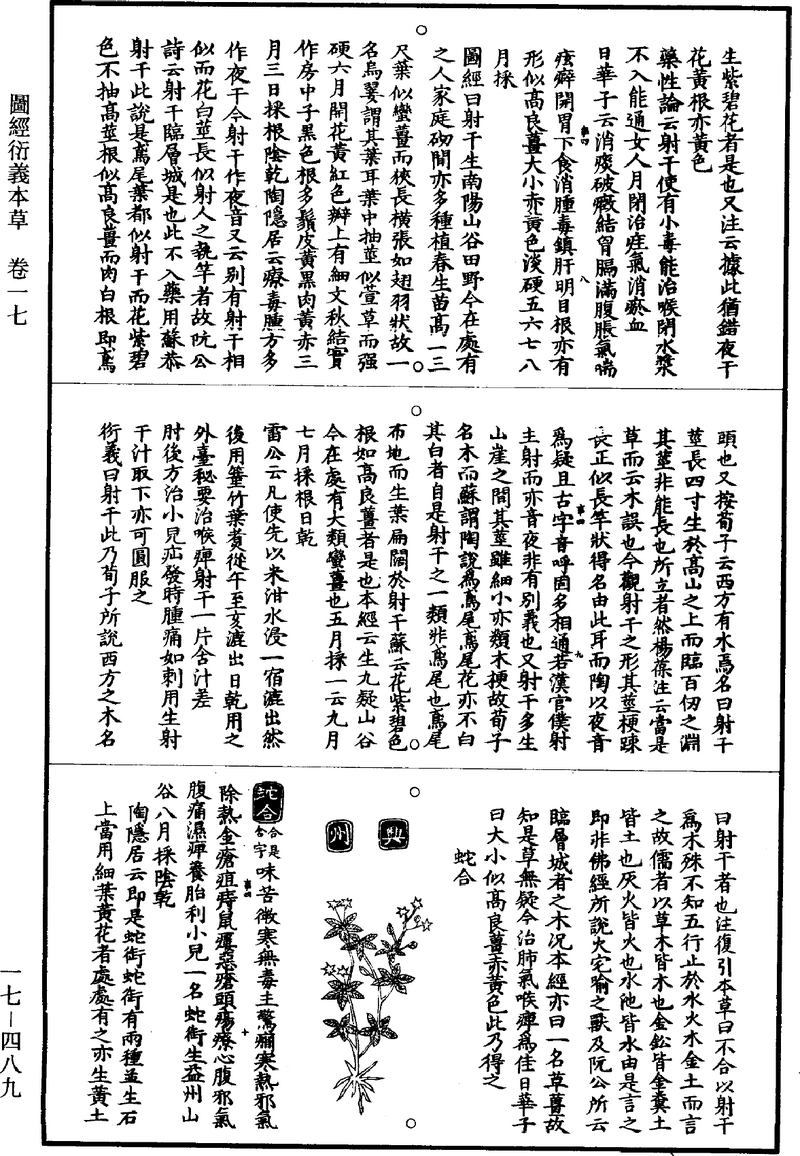 圖經衍義本草　卷一七
生紫碧花者是也又注云據此猶錯夜干
花黃根亦黃色
藥性論云射干使有小毒能治喉閉水漿
不入能通女人月閉治疰氣消瘀血
日華子云消痰破癥結胷膈滿腹脹氣喘
痃癖開胃下食消腫毒鎮肝明目根亦有
形似高良薑大小赤黃色淡硬五六七八
月採
圖經曰射干生南陽山谷田野今在處有
之人家庭砌間亦多種植春生苗高一三
尺葉似蠻薑而狹長橫張如翅羽狀故一
名烏翣謂其葉耳葉中抽莖似萱草而强
硬六月開花黃紅色瓣上有細文秋結實
作房中子黑色根多鬚皮黃黑肉黃赤三
月三日採根陰乾陶隱居云療毒腫方多
作夜干今射干作夜音又云别有射干相
似而花白莖長似射人之執竿者故阮公
詩云射干臨層城是也此不入藥用蘇恭
射干此說是鳶尾葉都似射干而花紫碧
色不抽高莖根似高良薑而肉白根即鳶
頭也又按荀子云西方有木焉名曰射干
莖長四寸生於高山之上而臨百仞之淵
其莖非能長也所立者然楊葆注云當是
草而云木誤也今觀射干之形其莖梗踈
長正似長竿狀得名由此耳而陶以夜音
爲疑且古字音呼固多相通若漢官僕射
主射而亦音夜非有别義也又射干多生
山崖之間其莖雖細小亦類木梗故荀子
名木而蘇謂陶說爲鳶尾鳶尾花亦不白
其白者自是射干之一類非鳶尾也鳶尾
布地而生葉扁闊於射干蘇云花紫碧色
根如高良薑者是也本經云生九疑山谷
今在處有大類蠻薑也五月採一云九月
七月採根日乾
雷公云凡使先以米泔水浸一宿漉出然
後用篁竹葉煑從午至亥漉出日乾用之
外臺秘要治喉痺射干一片含汁差
肘後方治小兒疝發時腫痛如刺用生射
干汁取下亦可圓服之
衍義曰射干此乃荀子所說西方之木名
曰射干者也注復引本草曰不合以射干
爲木殊不知五行止於水火木金土而言
之故儒者以草木皆木也金鈆皆金糞土
皆土也灰火皆火也水池皆水由是言之
即非佛經所說火宅喻之獸及阮公所云
臨層城者之木况本經亦曰一名草薑故
知是草無疑今治肺氣喉痺爲佳日華子
曰大小似高良薑赤黃色此乃得之
蛇合
興州
蛇合合是含字味苦微寒無毒主驚癇寒熱邪氣
除熱金瘡疽痔鼠瘻惡瘡頭瘍療心腹邪氣
腹痛濕痺養胎利小兒一名蛇銜生益州山
谷八月採陰乾
陶隱居云即是蛇銜蛇銜有兩種並生石
上當用細葉黃花者處處有之亦生黃土
一七－四八九